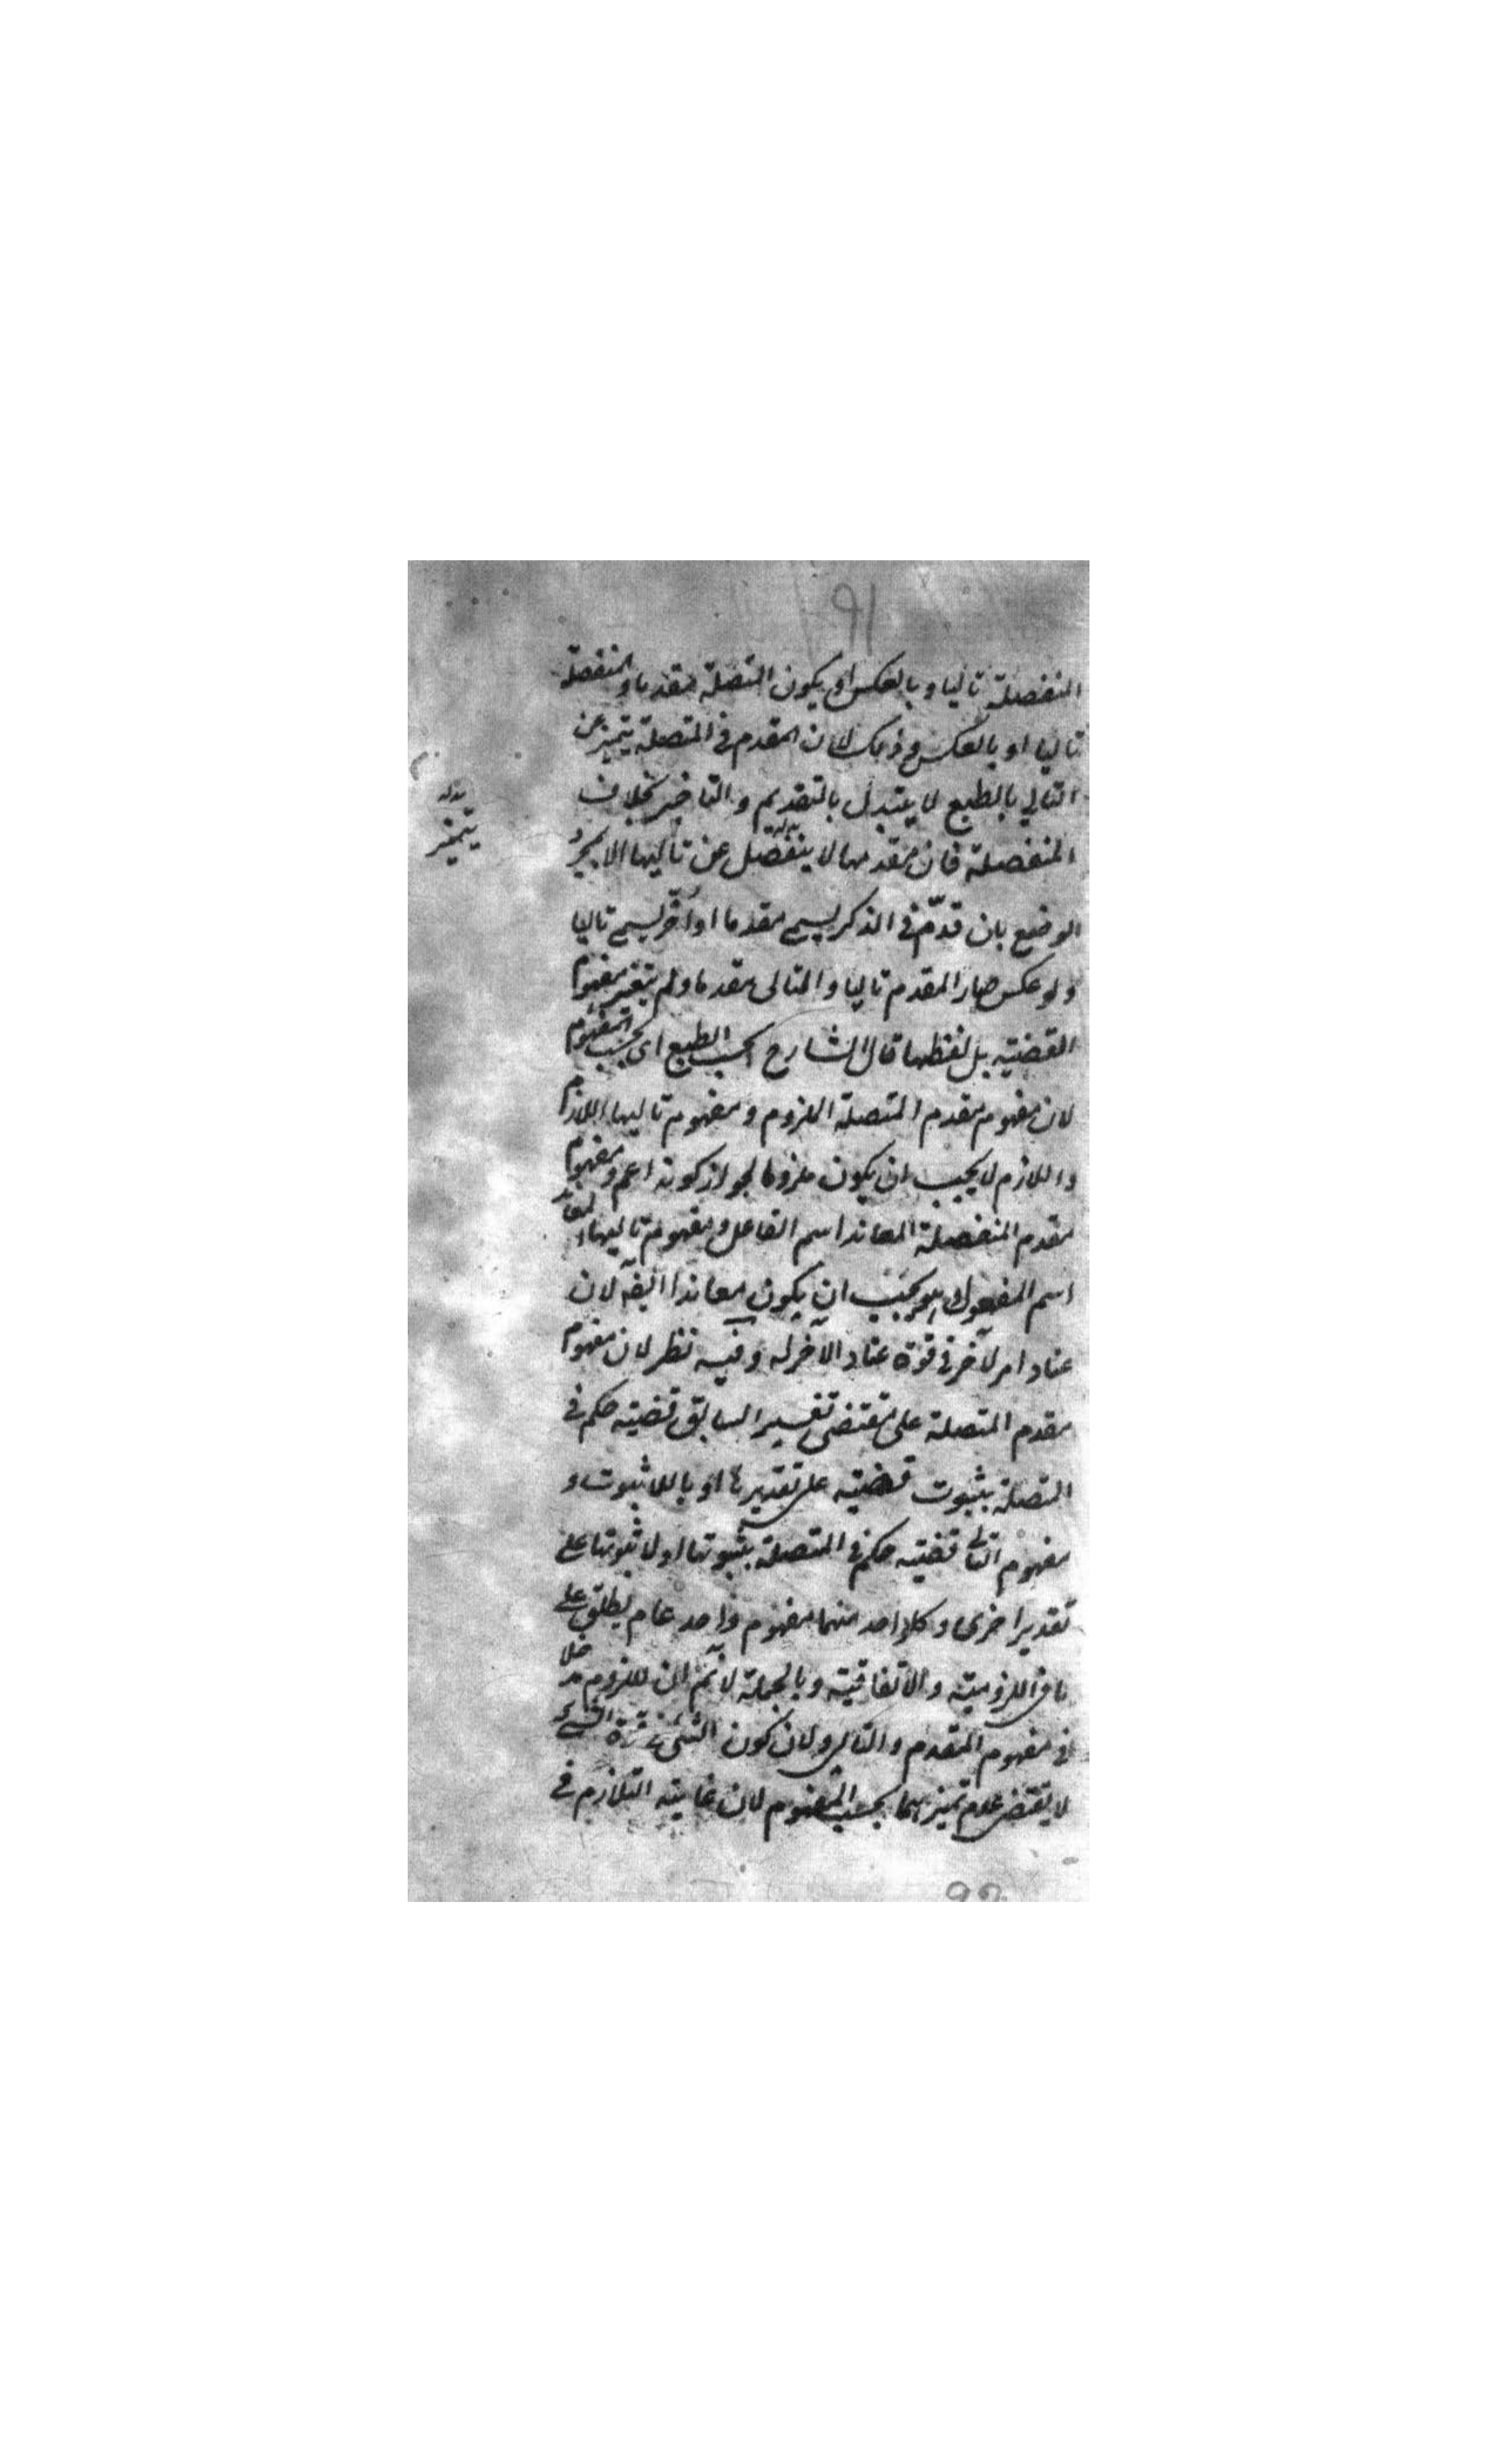 91
المنفصلة تاليا وبالعكس او يكون المتصلة مقدما والمنفصلة
تاليا او بالعكس وذلك لان المقدم في المتصلة يتميز عن
التالي بالطبع لا يتبدل بالتقديم والتاخير بخلاف
المنفصلة فان مقدمها لا ينفصل عن تاليها الا بمجرد
بدله
يتميز
الوضع بان قدّم في الذكر ليسمى مقدما او اخّر ليسمى تاليا
ولو عكس صار المقدم تاليا والتالى مقدما ولم يتغير مفهوم
القضية بل لفظها قال الشارح بحسب الطبع اى بحسب المفهوم
لان مفهوم مقدم المتصلة الملزوم ومفهوم تاليها اللازم
واللازم لا يجب ان يكون ملزوما لجواز كونه اعم ومفهوم
مقدم المنفصلة المعاند اسم الفاعل ومفهوم تاليها المعاند
اسم المفعول يجب ان يكون معاندا ايضه لان
عناد امر لآخر في قوة عناد الآخر له وفيه نظر لان مفهوم
مقدم المتصلة على مقتضى تفسير السابق قضيته حكم في
المتصلة بثبوت قضيته على تقديرها او باللاثبوت و
مفهوم التالى قضيته حكم في المتصلة بثبوتها او لا ثبوتها على
تقدير اخرى وكل واحد منهما مفهوم واحد عام يطلق على
اللزومية والاتفاقية وبالجملة لا نم ان للزوم
في مفهوم المقدم والتالى ولان كون الشئ في قوة الشئ
لا يقتضى عدم تميزهما بحسب المفهوم لان غايته التلازم في
92